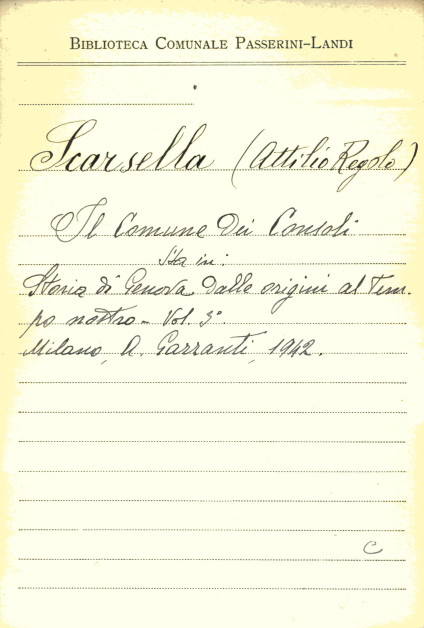 BIBLIOTECA COMUNALE PASSERINI-LANDI
Scarsella (Attilio Regolo)
Il Comune dei Consoli
Sta in:
Storia di Genova dalle origini al tem-
po nostro - Vol. 3°.
Milano, A. Garzanti, 1942.
C